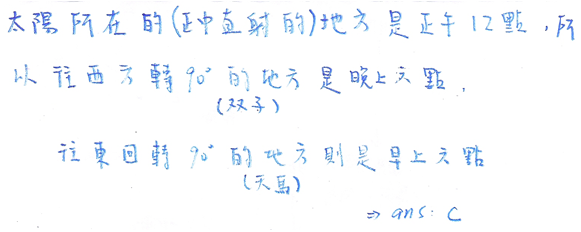 太陽所在的(正中直射的)地方是正午12點,所
以往西方轉90°的地方是晚上六點,
(双子)
往東回轉90°的地方則是早上六點
(天馬)
⇒ ans: C